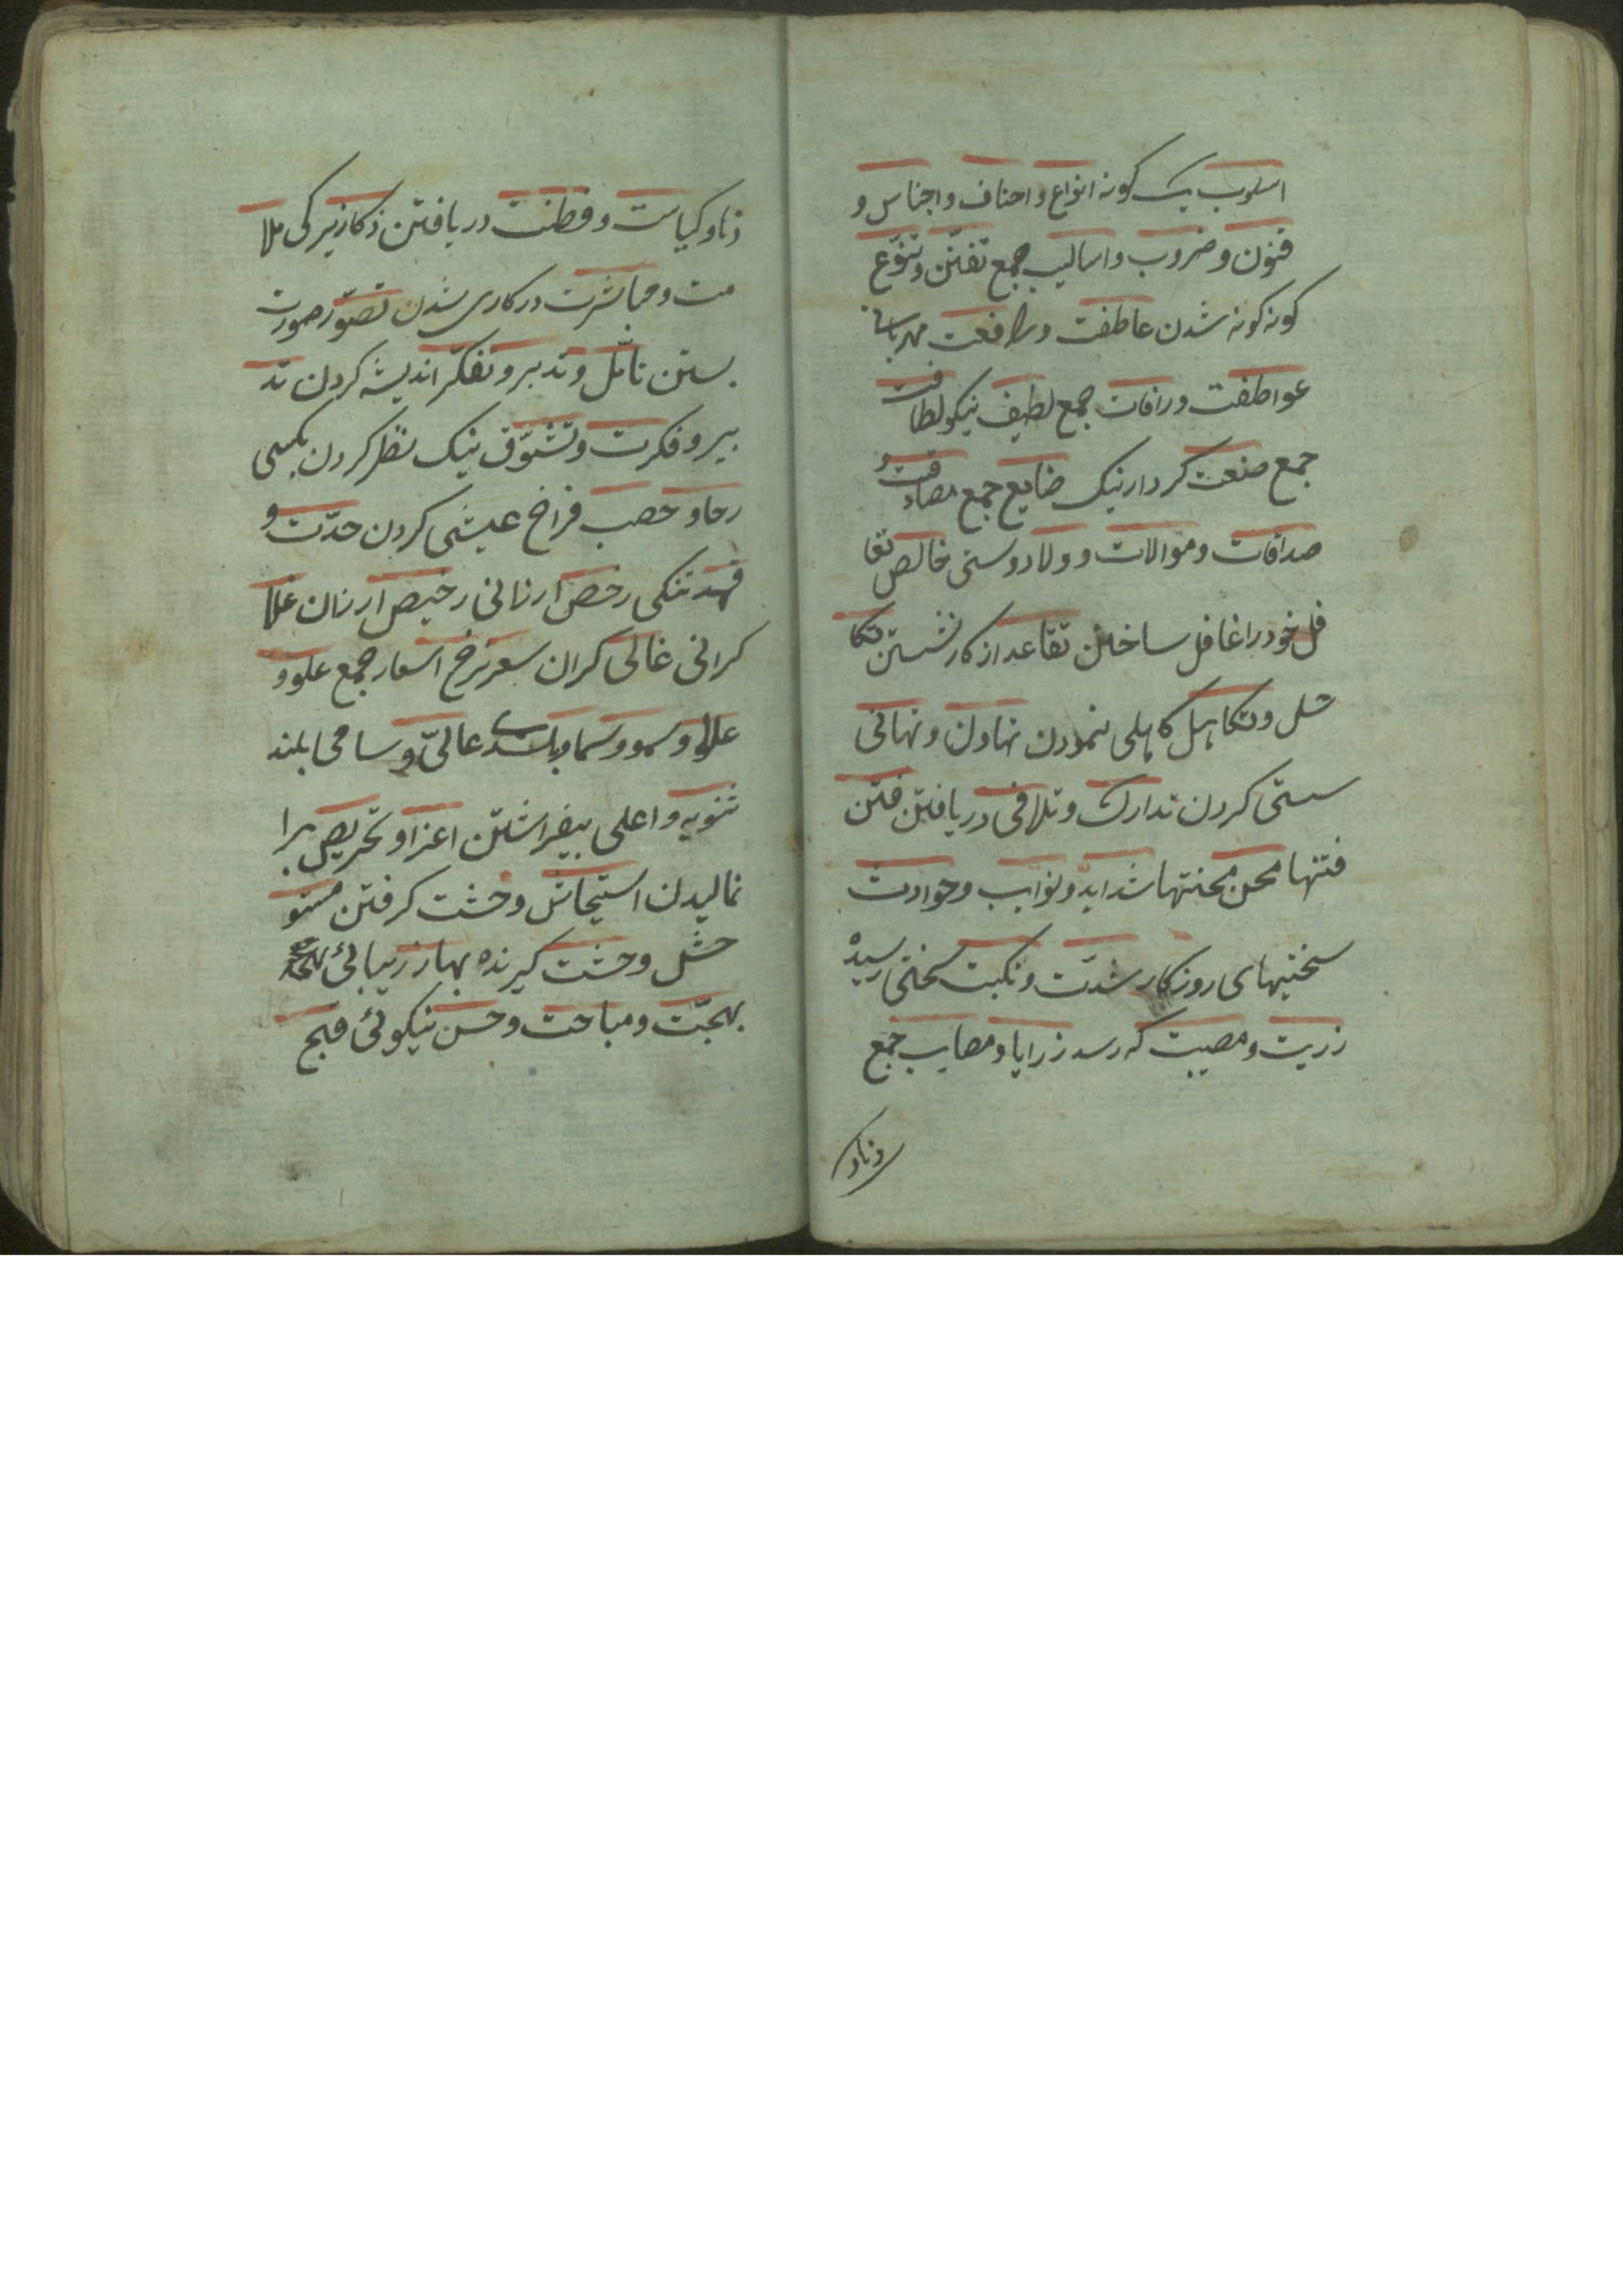 اسلوب یک کونه انواع و احناف و اجناس و
فنون و ضروب و اسالیب جمع تفنّن و تنوّع
کونه کونه شدن عاطفت و رافعت مهربانی
عواطفت و رافات جمع لطیف نیکو لطافت
جمع صنعت کردار نیک ضایع جمع مصادقت و
صداقات و موالات و ولا دوستی خالص تغا
فل خود را غافل ساختن تقاعد از کار نشستن تکا
سل و تکاهل کاهلی نمودن تهاون و تهانی
سستی کردن تدارک و تلافی دریافتن فتن
فتنها محن محنتها شداید و نوایب و حوادث
سختیهای روزکار شدّت و نکبت سختی رسیده
زریت و مصیبت که رسد زرایا و مصایب جمع
ذناو
ذنا و کیاست و فطنت دریافتن ذکا زیرکی ملا
مت و مباشرت در کاری شدن تصوّر صورت
بستن تامّل و تدبر و تفکّر اندیشه کردن تد
بیر و فکرت و تشوّق نیک نظر کردن بکسی
رخا و خصب فراخ عیشی کردن حدّت و
تنکی رخص ارزانی رخیص ارزان غلا
کرانی غالی کران سعر نرخ اسعار جمع علو و
علا و سمو و سما عالی و سامی بلند
تنویه و اعلی بیفراشتن اعزا و تحریص برا
نمالیدن استیحاش وحشت کرفتن مستو
حش وحشت کیرنده بها زیبائی
بهجّت و مباحت و حسن نیکوئی قبح